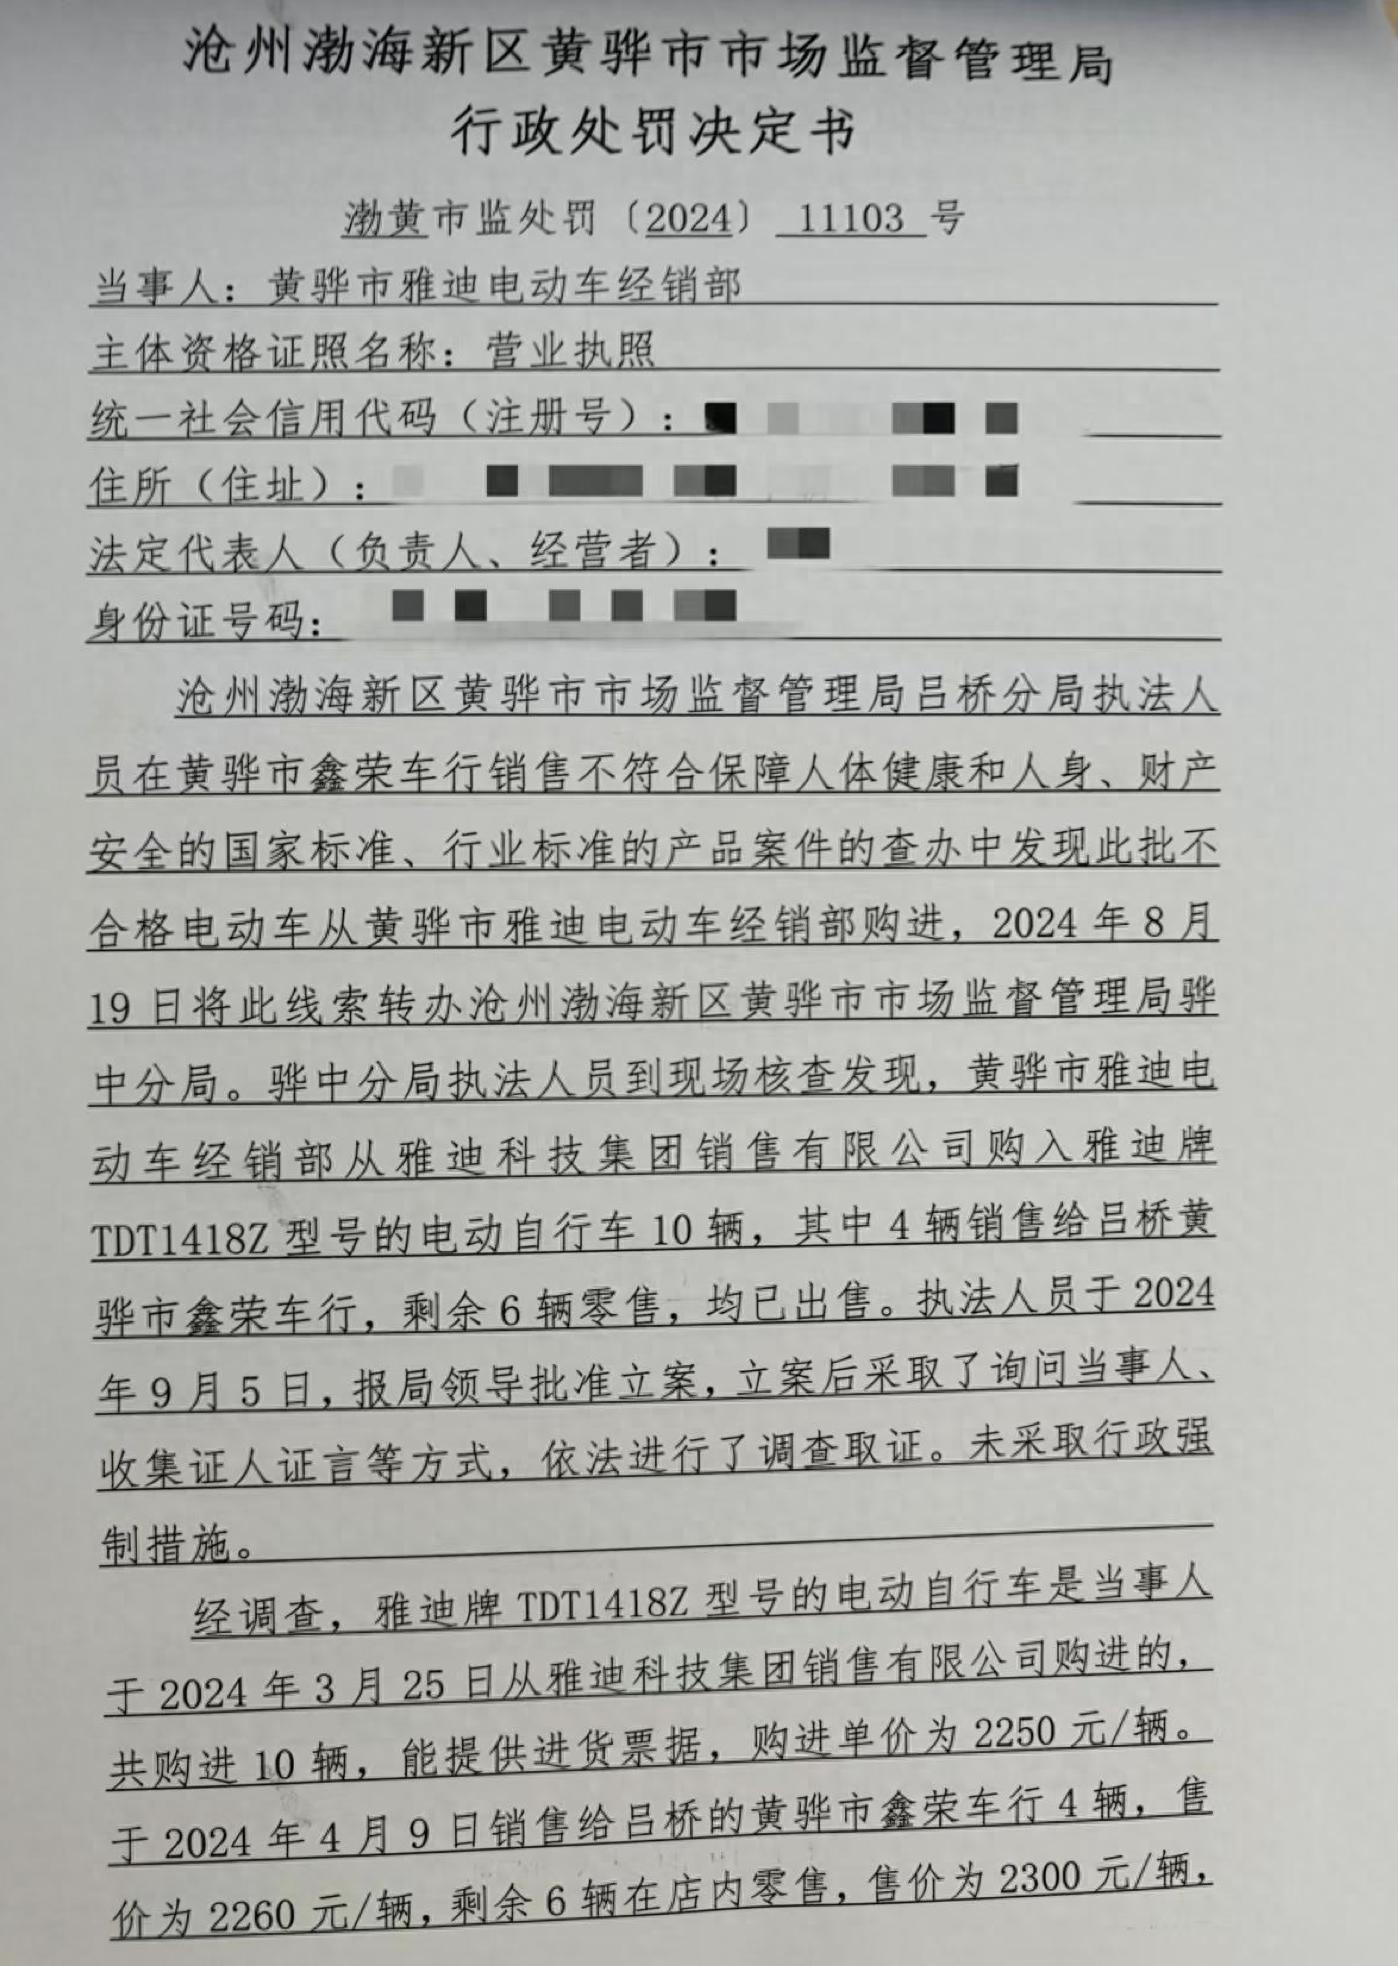 沧州渤海新区黄骅市市场监督管理局
行政处罚决定书
渤黄市监处罚〔2024〕 11103 号
当事人：黄骅市雅迪电动车经销部
主体资格证照名称：营业执照
统一社会信用代码（注册号）：
住所（住址）：
法定代表人（负责人、经营者）：
身份证号码：
沧州渤海新区黄骅市市场监督管理局吕桥分局执法人
员在黄骅市鑫荣车行销售不符合保障人体健康和人身、财产
安全的国家标准、行业标准的产品案件的查办中发现此批不
合格电动车从黄骅市雅迪电动车经销部购进，2024 年 8 月
19 日将此线索转办沧州渤海新区黄骅市市场监督管理局骅
中分局。骅中分局执法人员到现场核查发现，黄骅市雅迪电
动车经销部从雅迪科技集团销售有限公司购入雅迪牌
TDT1418Z 型号的电动自行车 10 辆，其中 4 辆销售给吕桥黄
骅市鑫荣车行，剩余 6 辆零售，均已出售。执法人员于 2024
年 9 月 5 日，报局领导批准立案，立案后采取了询问当事人、
收集证人证言等方式，依法进行了调查取证。未采取行政强
制措施。
经调查，雅迪牌 TDT1418Z 型号的电动自行车是当事人
于 2024 年 3 月 25 日从雅迪科技集团销售有限公司购进的，
共购进 10 辆，能提供进货票据，购进单价为 2250 元/辆。
于 2024 年 4 月 9 日销售给吕桥的黄骅市鑫荣车行 4 辆，售
价为 2260 元/辆，剩余 6 辆在店内零售，售价为 2300 元/辆，